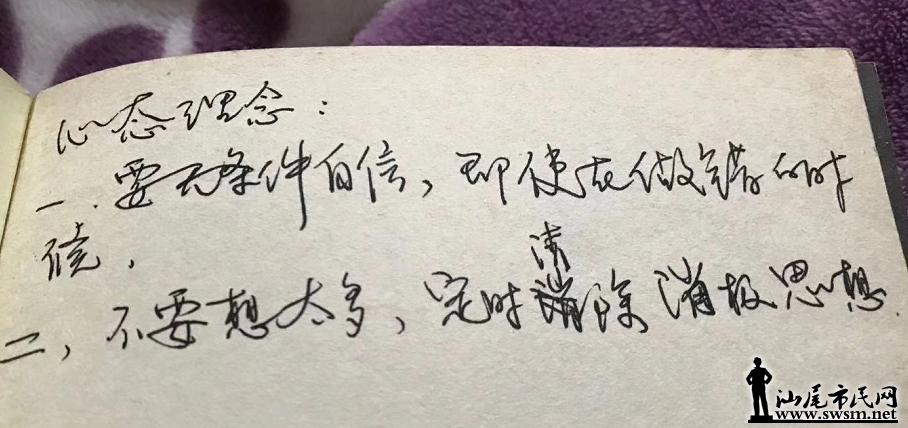 心态理念:
一、要无条件自信,即使在做错的时
候,
二、不要想太多,定时清除消极思想.
汕尾市民网
www.swsm.net